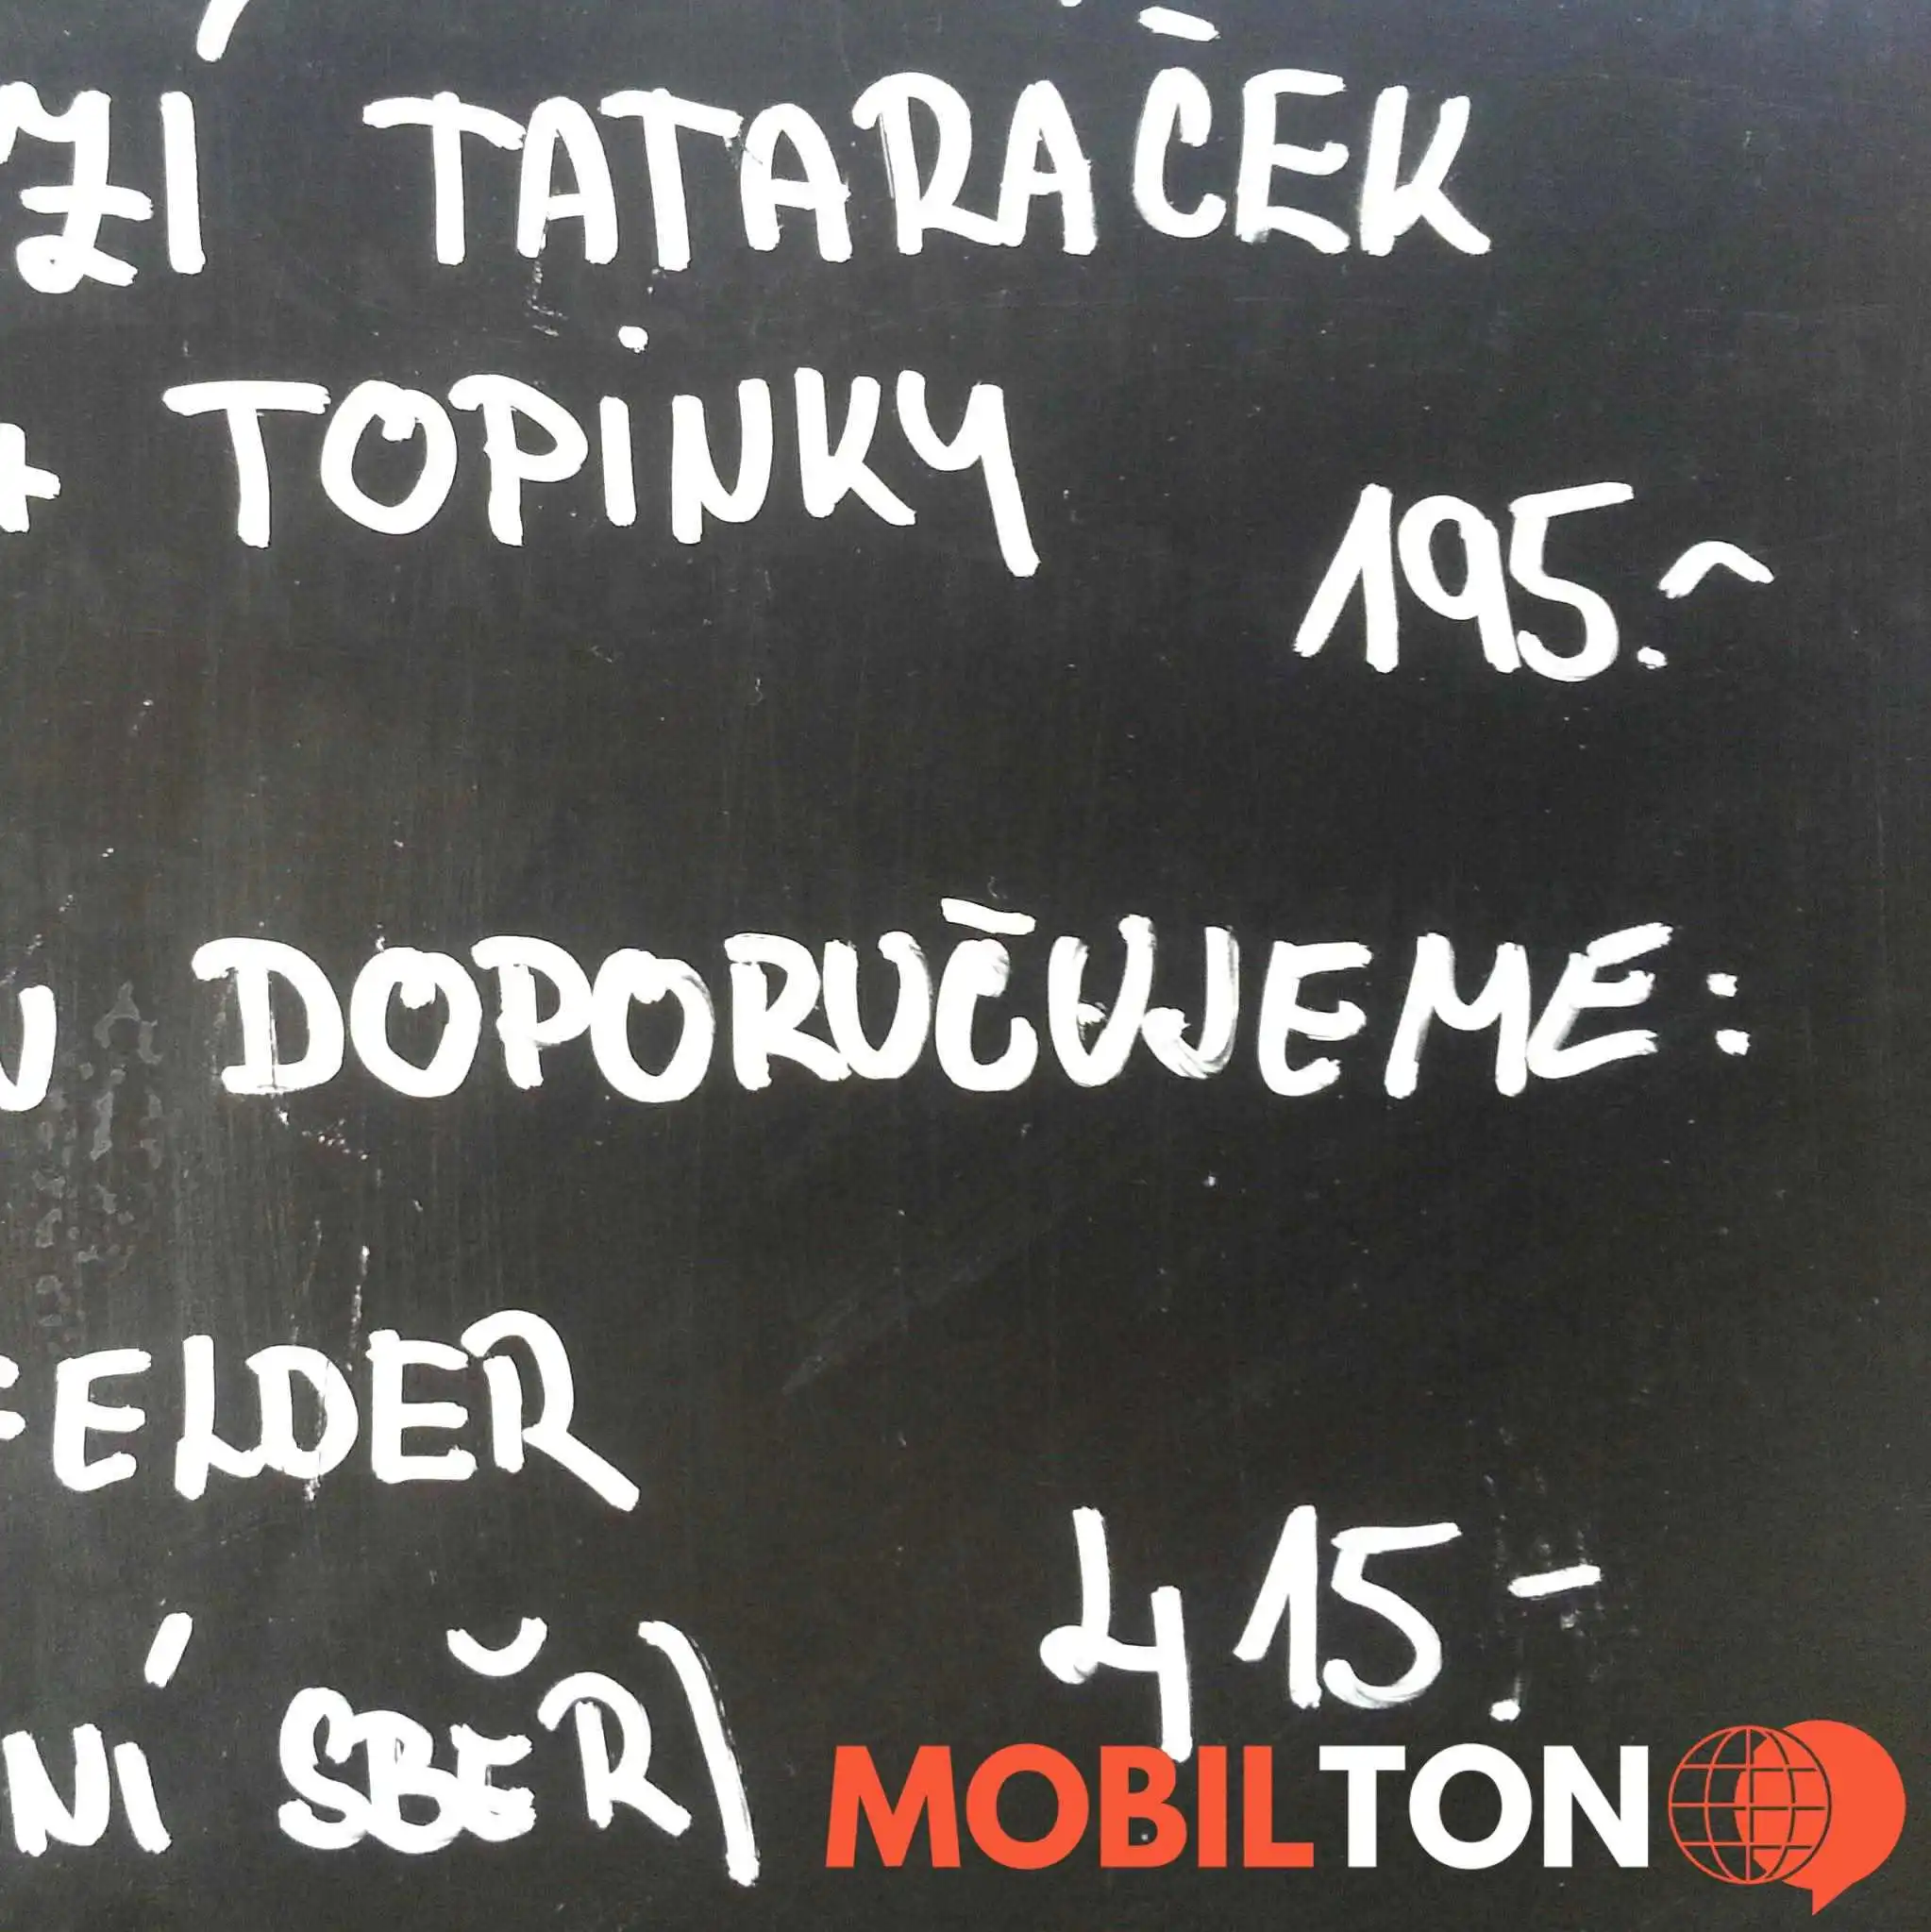 ZÍ TATARAČEK
+ TOPINKY
195.-
DOPORUČUJEME:
FELDER
415.-
NÍ SBĚR)
MOBILTON